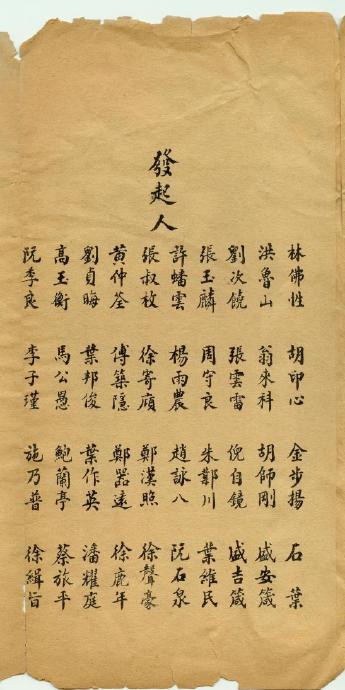 發起人
林佛性 胡印心 金步揚 石葉
洪魯山 翁來科 胡師剛 盛安箴
劉次饒 張雲雷 倪自鏡 盛吉箴
張玉麟 周守良 葉維民
許蟠雲 楊雨農 趙詠八 阮石泉
張叔枚 徐寄廎 鄭漢照 徐聲豪
黃仲荃 傅築隱 鄭器遠 徐鹿年
劉貞晦 葉邦俊 葉作英 潘耀庭
高玉衡 馬公愚 鮑蘭亭 蔡旅平
阮季良 李子瑾 施乃普 徐緝旨